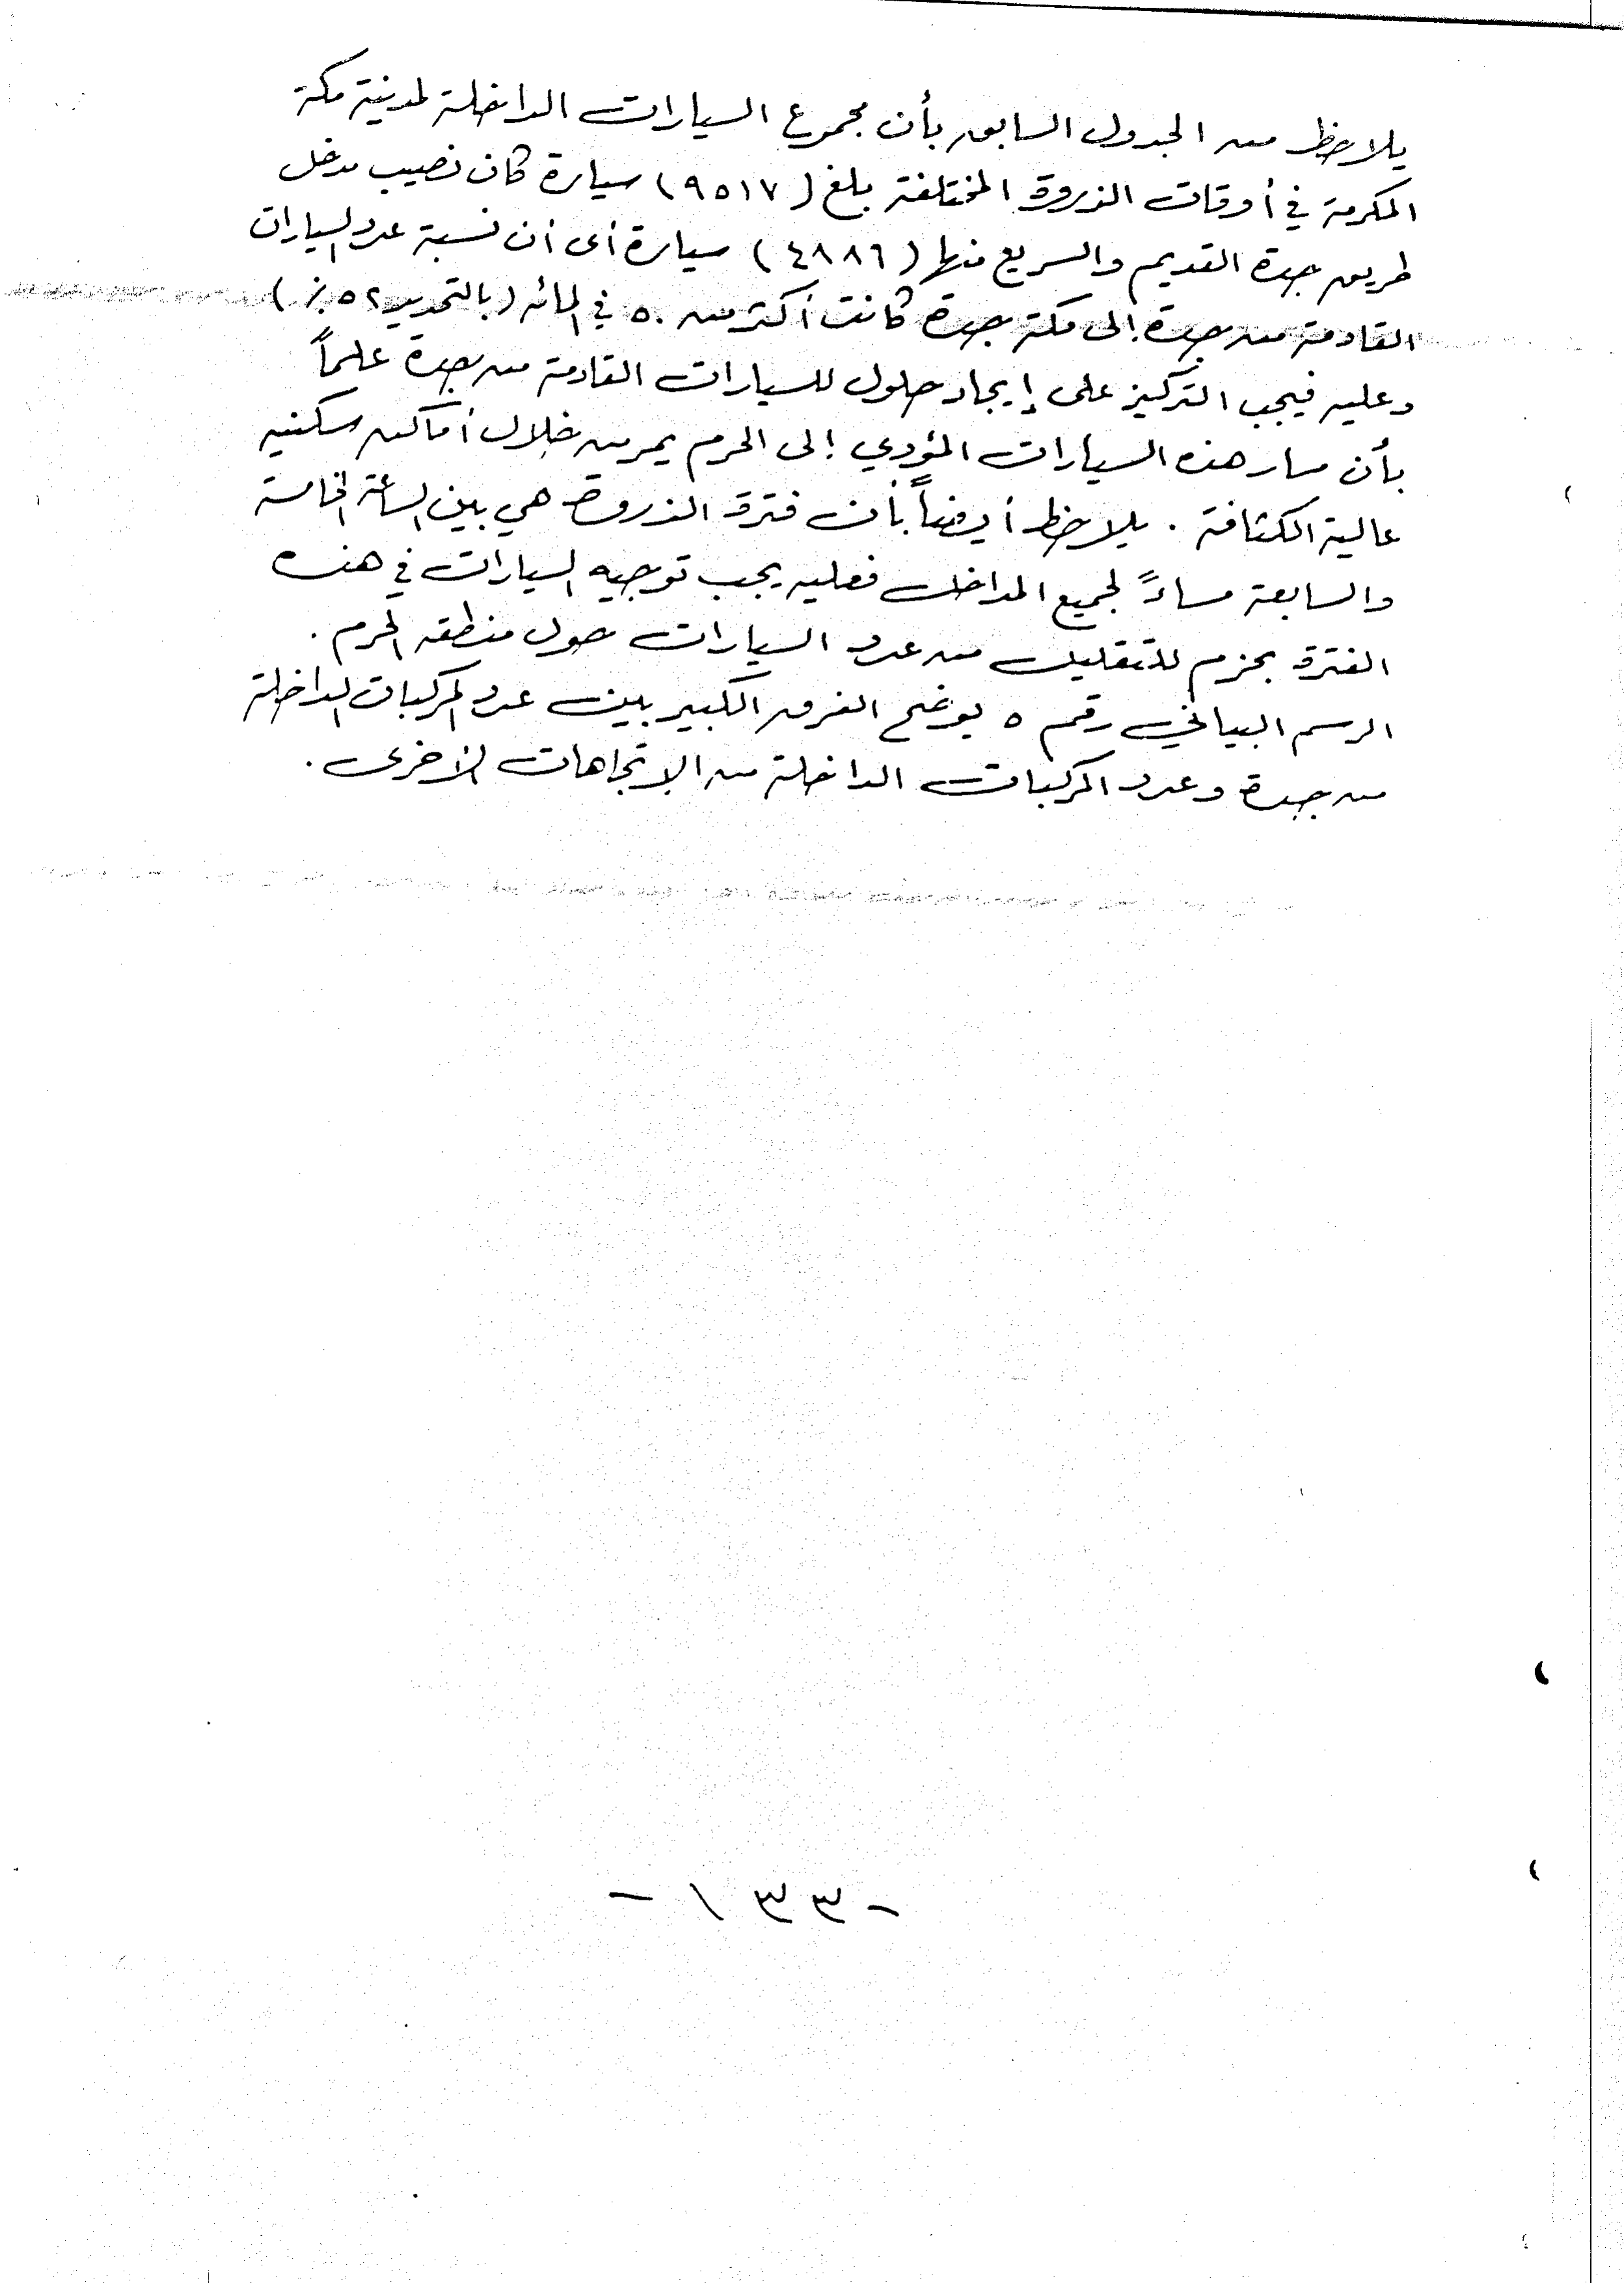 يلاحظ من الجدول السابق بأن مجموع السيارات الداخلة لمدينة مكة
المكرمة في أوقات الذروة المختلفة بلغ (٩٥١٧) سيارة كان نصيب مدخل
طريق جدة القديم والسريع منها (٤٨٨٦) سيارة أى أن نسبة عدد السيارات
القادمة من جدة إلى مكة جدة كانت أكثر من ٥٠ في المائه (بالتحديد ٥٢٪)
وعليه فيجب التركيز على إيجاد حلول للسيارات القادمة من جدة علماً
بأن مسار هذه السيارات المؤدي إلى الحرم يمر من خلال أماكن سكنيه
عالية الكثافة . يلاحظ أيضاً بأن فترة الذروة هي بين الساعة الخامسة
والسابعة مساءً لجميع المداخل فعليه يجب توجيه السيارات في هذه
الفترة بحزم للتقليل من عدد السيارات حول منطقه الحرم .
الرسم البياني رقم ٥ يوضح الفرق الكبير بين عدد المركبات الداخلة
من جدة وعدد المركبات الداخلة من الإتجاهات الأخرى .
- ١٣٣ -